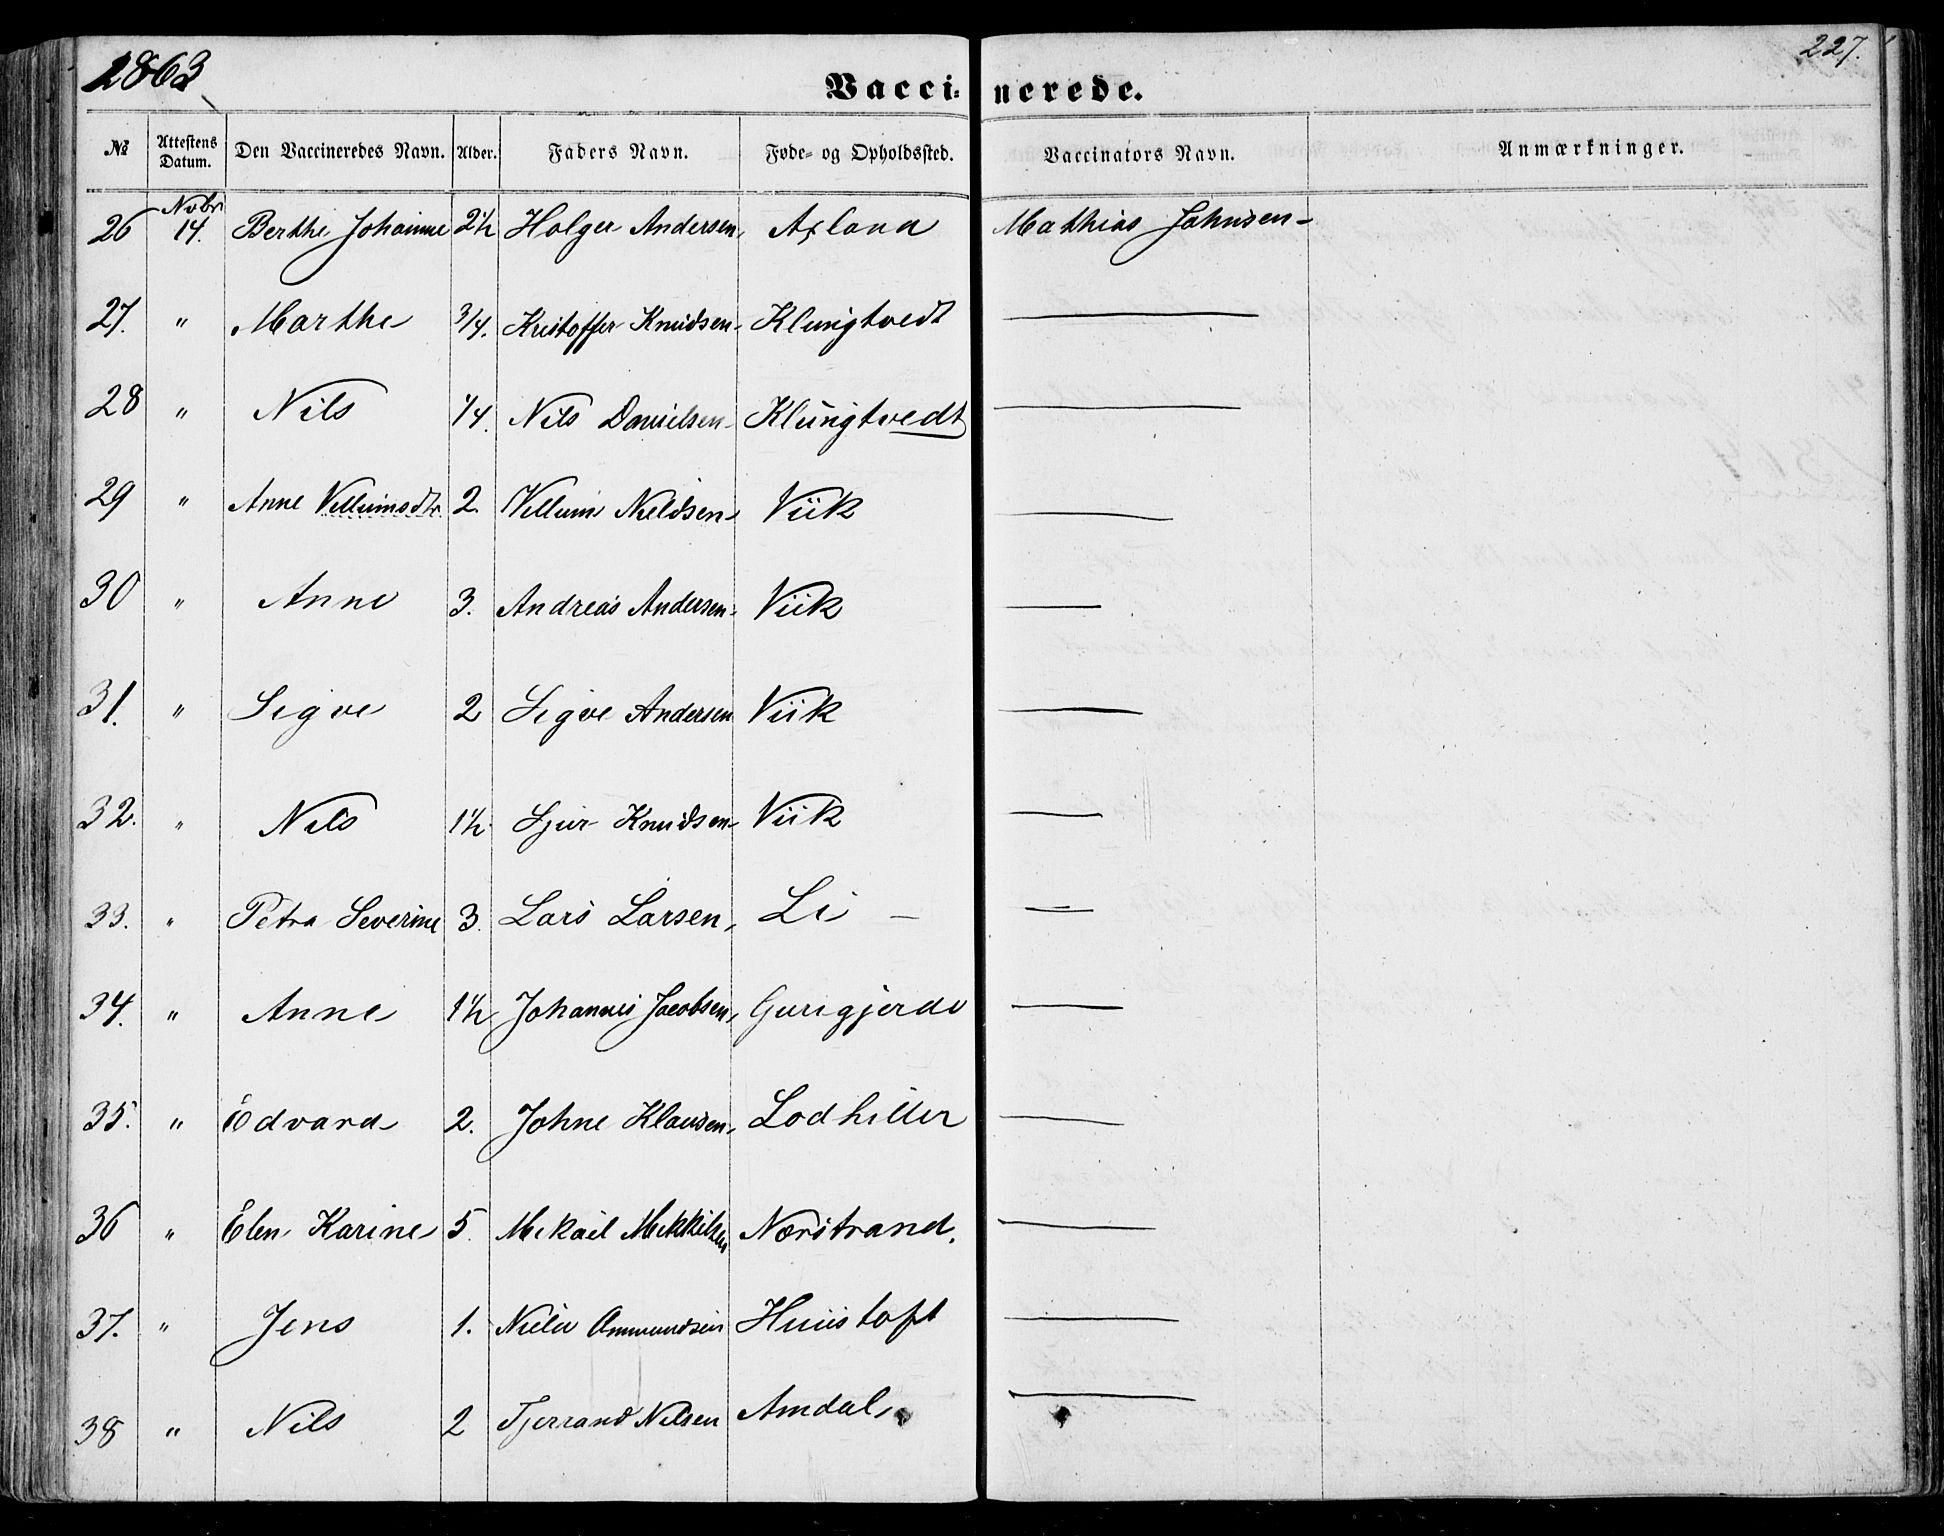 1863
227.
Vaccinerede.
№ Attestens Datum. Den Vaccineredes Navn. Alder. Faders Navn. Føde- og Opholdssted. Vaccinators Navn. Anmærkninger.
26 Nvbr. 14. Berthe Johanne 2½ Holger Andersen, Axland Mathias Johnsen-
27. " Marthe 3/4. Kristoffer Knudsen- Klungtvedt —
28 " Nils 1/4. Nils Danielsen- Klungtvedt —
29 " Anne Vellumsdtr. 2. Vellum Nielsen- Viik —
30 " Anne 3. Andreas Andersen- Viik —
31. " Sigve 2 Sigve Andersen Viik —
32. " Nils 1½. Sjur Knudsen- Viik —
33. " Petra Severine 3. Lars Larsen, Li — —
34. " Anne 1½ Johannes Jacobsen, Gurigjerde —
35. " Edvard 2. Johne Klausen, Lodhiller —
36 " Elen Karine 5. Mikael Mikkelsen Nærstrand. —
37. " Jens 1. Ommundsen Huustoft —
38 " Nils 2 Tjerrand Nilsen Amdal, —